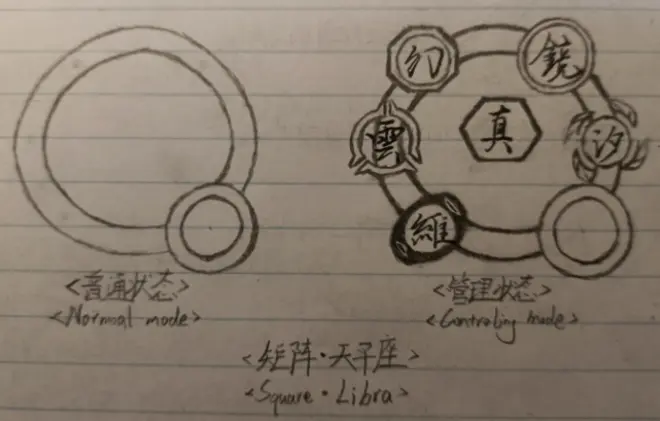 幻
鏡
雲
真
汐
維
<普通状态>
<Normal mode>
<管理状态>
<Controling mode>
<矩阵·天平座>
<Square·Libra>